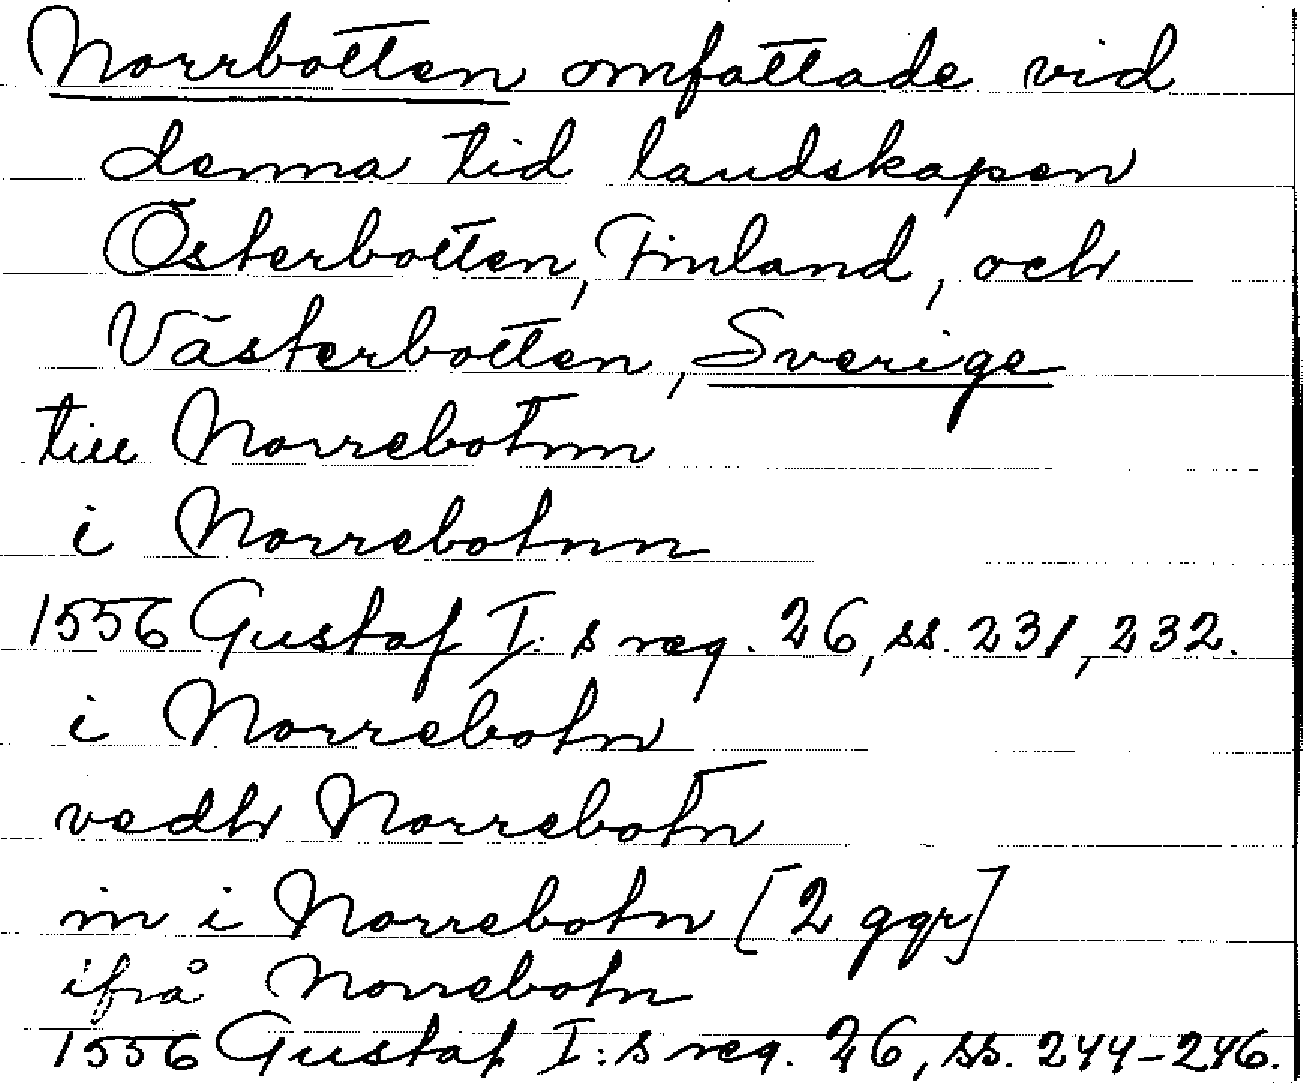 Norrbotten omfattade vid
denna tid landskapen
Österbotten, Finland, och
Västerbotten, Sverige
till Norrebotnn
i Norrebotnnn
1556 Gustaf I:s reg. 26, ss. 231, 232.
i Norrebotn
vedh Norrebotn
in i Norrebotn [2 ggr]
ifrå Norrebotn
1556 Gustaf I:s reg. 26, ss. 244-246.